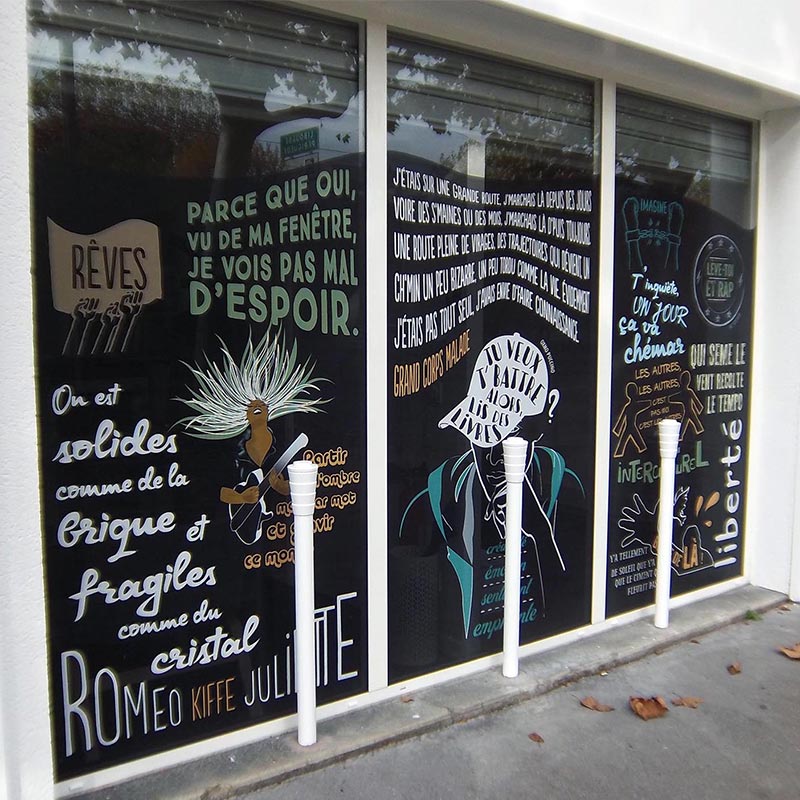 RÊVES
PARCE QUE OUI,
VU DE MA FENÊTRE,
JE VOIS PAS MAL
D'ESPOIR.
On est
solides
comme de la
brique et
fragiles
comme du
cristal
Partir
d'ombre
mot
ce
ROMEO KIFFE JULIETTE
J'ÉTAIS SUR UNE GRANDE ROUTE, J'MARCHAIS LÀ DEPUIS DES JOURS
VOIRE DES S'MAINES OU DES MOIS, J'MARCHAIS LÀ D'PUIS TOUJOURS
UNE ROUTE PLEINE DE VIRAGES, DES TRAJECTOIRES QUI DÉVIENT, UN
CH'MIN UN PEU BIZARRE, UN PEU TORDU COMME LA VIE. ÉVIDEMMENT
J'ÉTAIS PAS TOUT SEUL, J'AVAIS ENVIE D'FAIRE CONNAISSANCE.
GRAND CORPS MALADE
OXMO PUCCINO
TU VEUX
T'BATTRE
ALORS,
LIS DES
LIVRES
?
empreinte
IMAGINE
LÈVE-TOI
ET RAP
T'inquète,
UN JOUR
ça va
chémar
QUI SÈME LE
VENT RÉCOLTE
LE TEMPO
LES AUTRES,
LES AUTRES,
C'EST
PAS MOI
C'EST LES AUTRES
INTERCULTUREL
liberté
LÀ!
Y'A TELLEMENT
DE SOLEIL QUE Y'A
QUE LE CIMENT QU
FLEURIT PAS